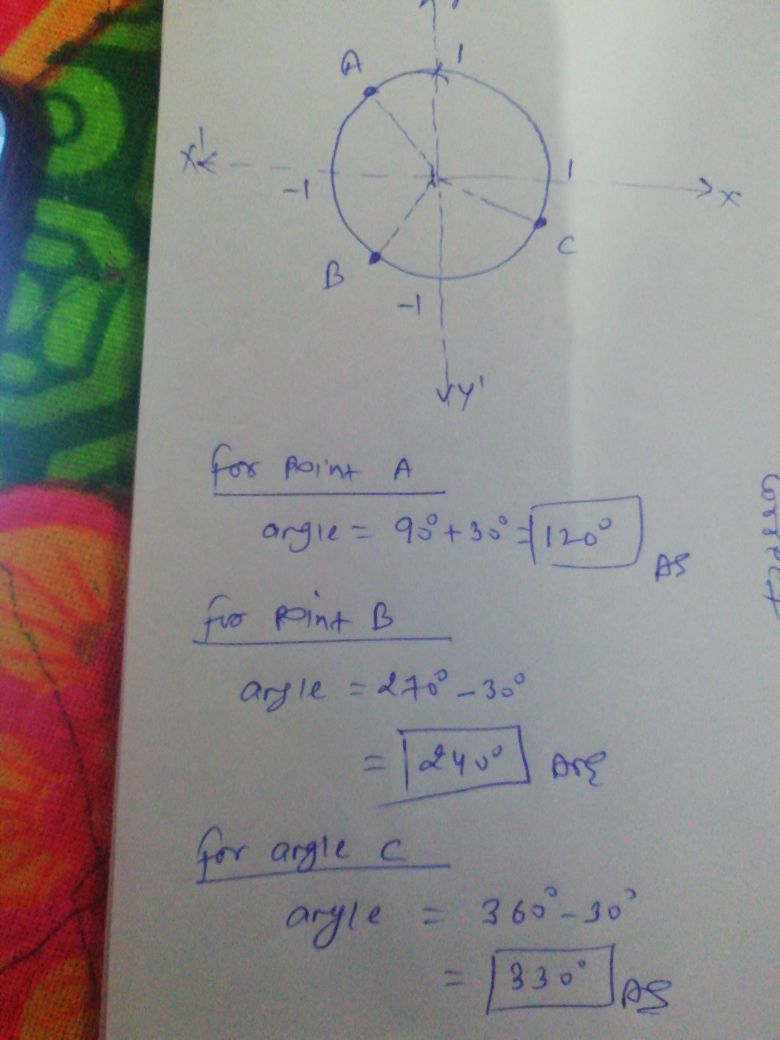 A
1
X'
-1
1
X
B
C
-1
Y'
for point A
angle = 90° + 30° = 120°
As
for point B
angle = 270° - 30°
= 240° Ans
for angle C
angle = 360° - 30°
= 330° As